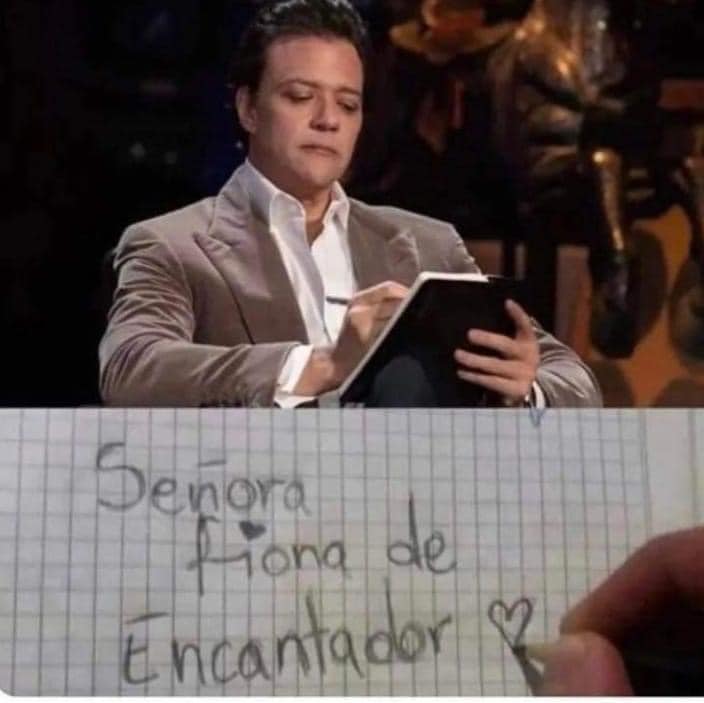 Señora
fiona de
Encantador ♡